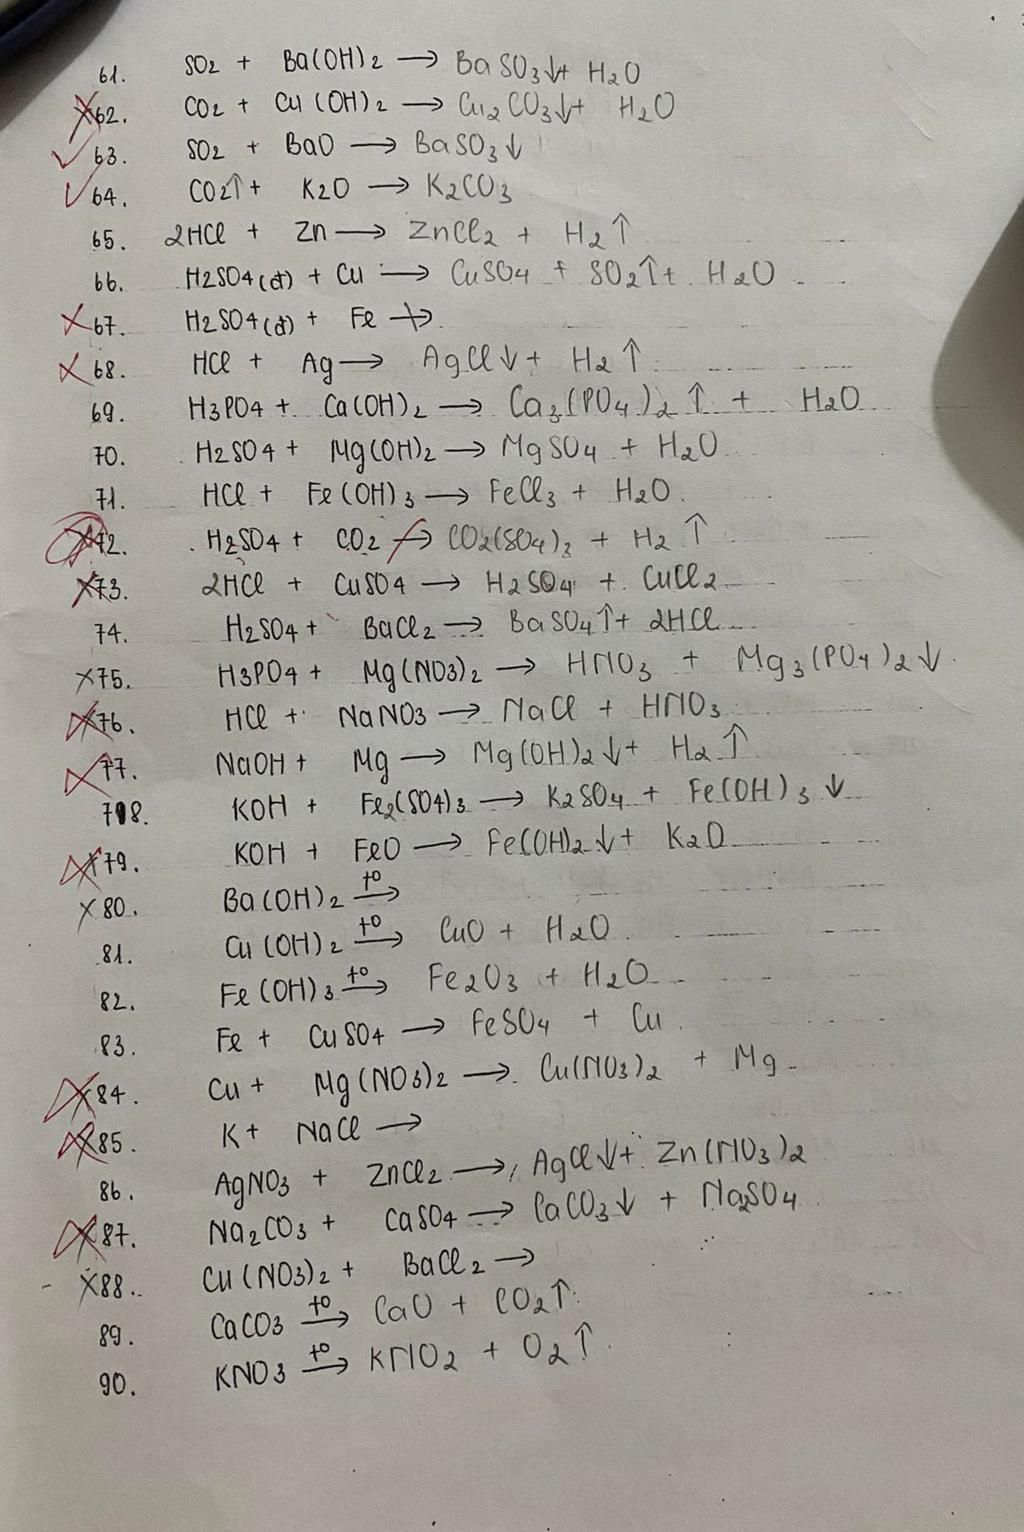 61. SO2 + Ba(OH)2 → BaSO3↓+ H2O
62. CO2 + Cu(OH)2 → Cu2CO3↓+ H2O
63. SO2 + BaO → BaSO3↓
64. CO2↑+ K2O → K2CO3
65. 2HCl + Zn → ZnCl2 + H2↑
66. H2SO4(đ) + Cu → CuSO4 + SO2↑+ H2O
67. H2SO4(đ) + Fe ↛
68. HCl + Ag → AgCl↓+ H2↑
69. H3PO4 + Ca(OH)2 → Ca3(PO4)2↑ + H2O
70. H2SO4 + Mg(OH)2 → MgSO4 + H2O
71. HCl + Fe(OH)3 → FeCl3 + H2O
72. H2SO4 + CO2 ↛ CO2(SO4)3 + H2↑
73. 2HCl + CuSO4 → H2SO4 + CuCl2
74. H2SO4 + BaCl2 → BaSO4↑+ 2HCl
75. H3PO4 + Mg(NO3)2 → HNO3 + Mg3(PO4)2↓
76. HCl + NaNO3 → NaCl + HNO3
77. NaOH + Mg → Mg(OH)2↓+ H2↑
78. KOH + Fe2(SO4)3 → K2SO4 + Fe(OH)3↓
79. KOH + FeO → Fe(OH)2↓+ K2O
80. Ba(OH)2 t0→
81. Cu(OH)2 t0→ CuO + H2O
82. Fe(OH)3 t0→ Fe2O3 + H2O
83. Fe + CuSO4 → FeSO4 + Cu
84. Cu + Mg(NO3)2 → Cu(NO3)2 + Mg
85. K + NaCl →
86. AgNO3 + ZnCl2 → AgCl↓+ Zn(NO3)2
87. Na2CO3 + CaSO4 → CaCO3↓ + Na2SO4
88. Cu(NO3)2 + BaCl2 →
89. CaCO3 t0→ CaO + CO2↑
90. KNO3 t0→ KNO2 + O2↑